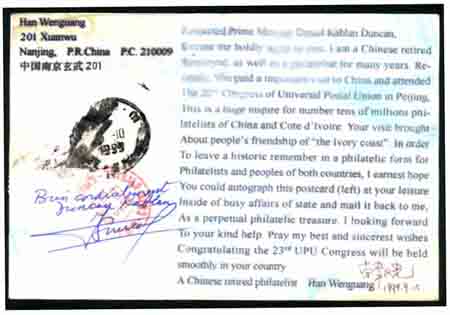 Han Wenguang
201 Xuanwu
Nanjing, P.R.China P.C. 210009
中国南京玄武201
Respected Prime Daniel Kablan Duncan,
boldly to you. I am a Chinese retired
as well as a for many years. Re-
You paid a important visit to China and attended
The 22 Congress of Universal Postal Union in Peijing,
This is a huge inspire for number tens of millions phi-
latelists of China and Cote d'Ivoire. Your visit brought
About people's friendship of "the Ivory coast". In order
To leave a historic remember in a philatelic form for
Philatelists and peoples of both countries, I earnest hope
You could autograph this postcard (left) at your leisure
Inside of busy affairs of state and mail it back to me,
As a perpetual philatelic treasure. I looking forward
To your kind help. Pray my best and sincerest wishes
Congratulating the 23rd UPU Congress will be held
smoothly in your country
A Chinese retired philatelist Han Wenguang
Bien cordialement
Duncan Kablan